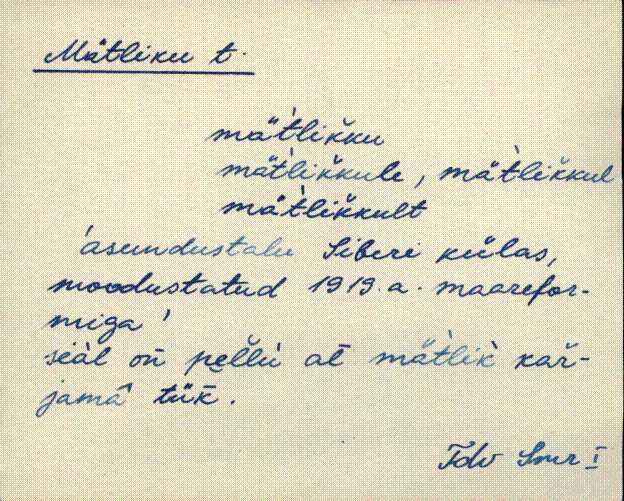 Mätliku t.
mät̀lik̆ku
mät̀lik̆kule, mät̀lik̆kul
mät̀lik̆kult
'asundustalu Siberi külas,
moodustatud 1919. a. maarefor-
miga'
seàl oǹ at̄ mät̀lik̀ kar̆-
jamā tük̄.
Tdv I